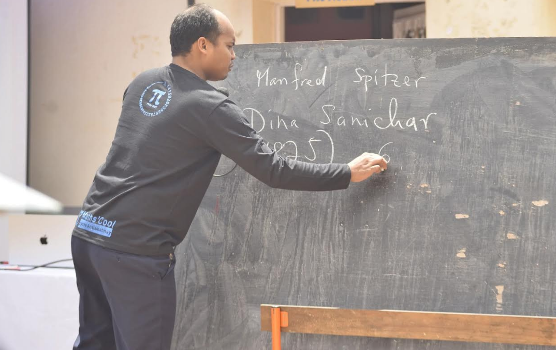 Manfred Spitzer
Dina Sanichar
(1875) 6
π
's Cool